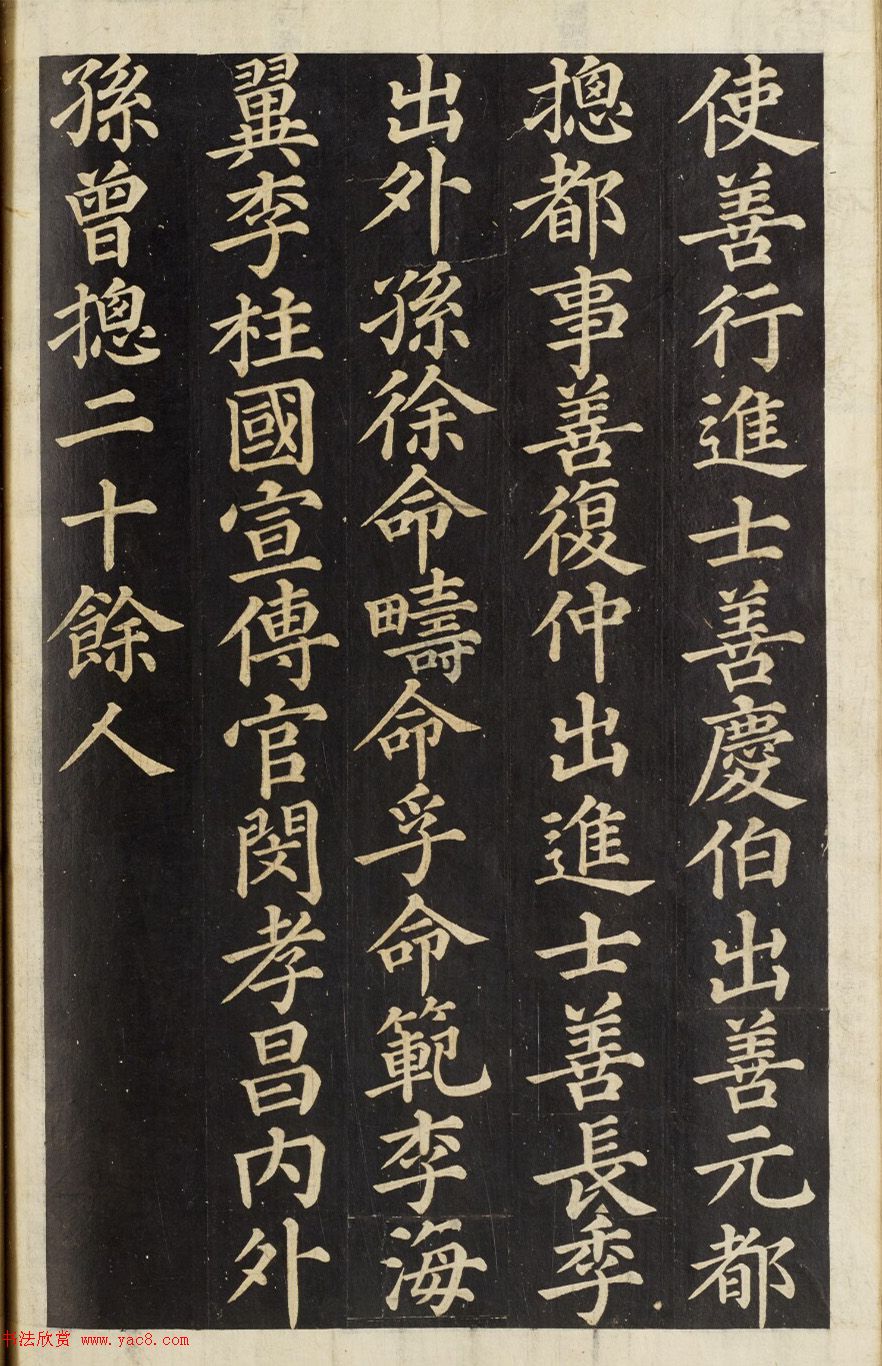 使善行進士善慶伯出善元都
揔都事善復仲出進士善長季
出外孫徐命疇命孚命範李海
翼李柱國宣傳官閔孝昌内外
孫曾揔二十餘人
书法欣赏 www.yac8.com